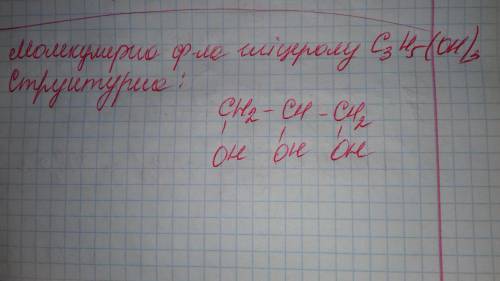 Молекулярна ф-ла гліцеролу C₃H₅(OH)₃
Структурна:
CH₂ - CH - CH₂
OH OH OH